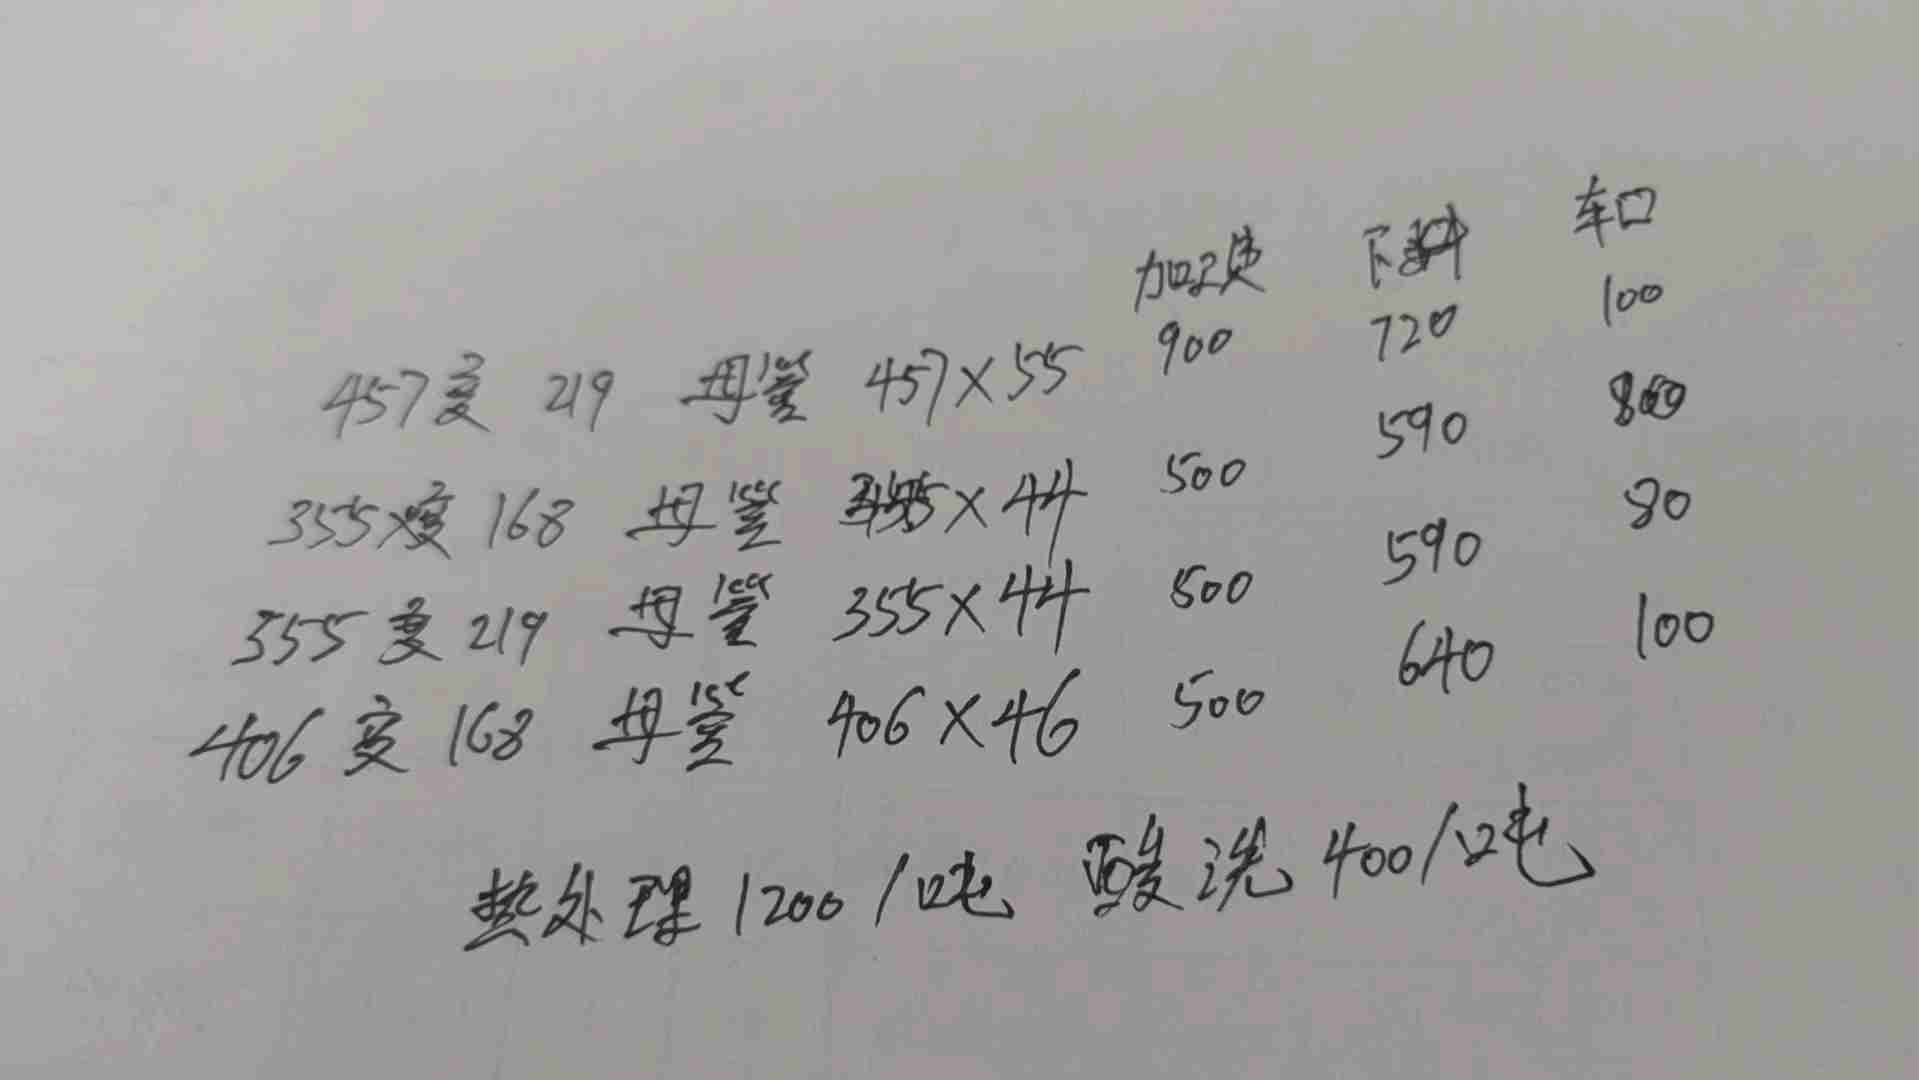 加工费 下料 车口
457变 219 母管 457×55 900 720 100
355×变 168 母管 355×44 500 590 80
355变 219 母管 355×44 500 590 80
406变 168 母管 406×46 500 640 100
热处理1200/吨 酸洗400/吨